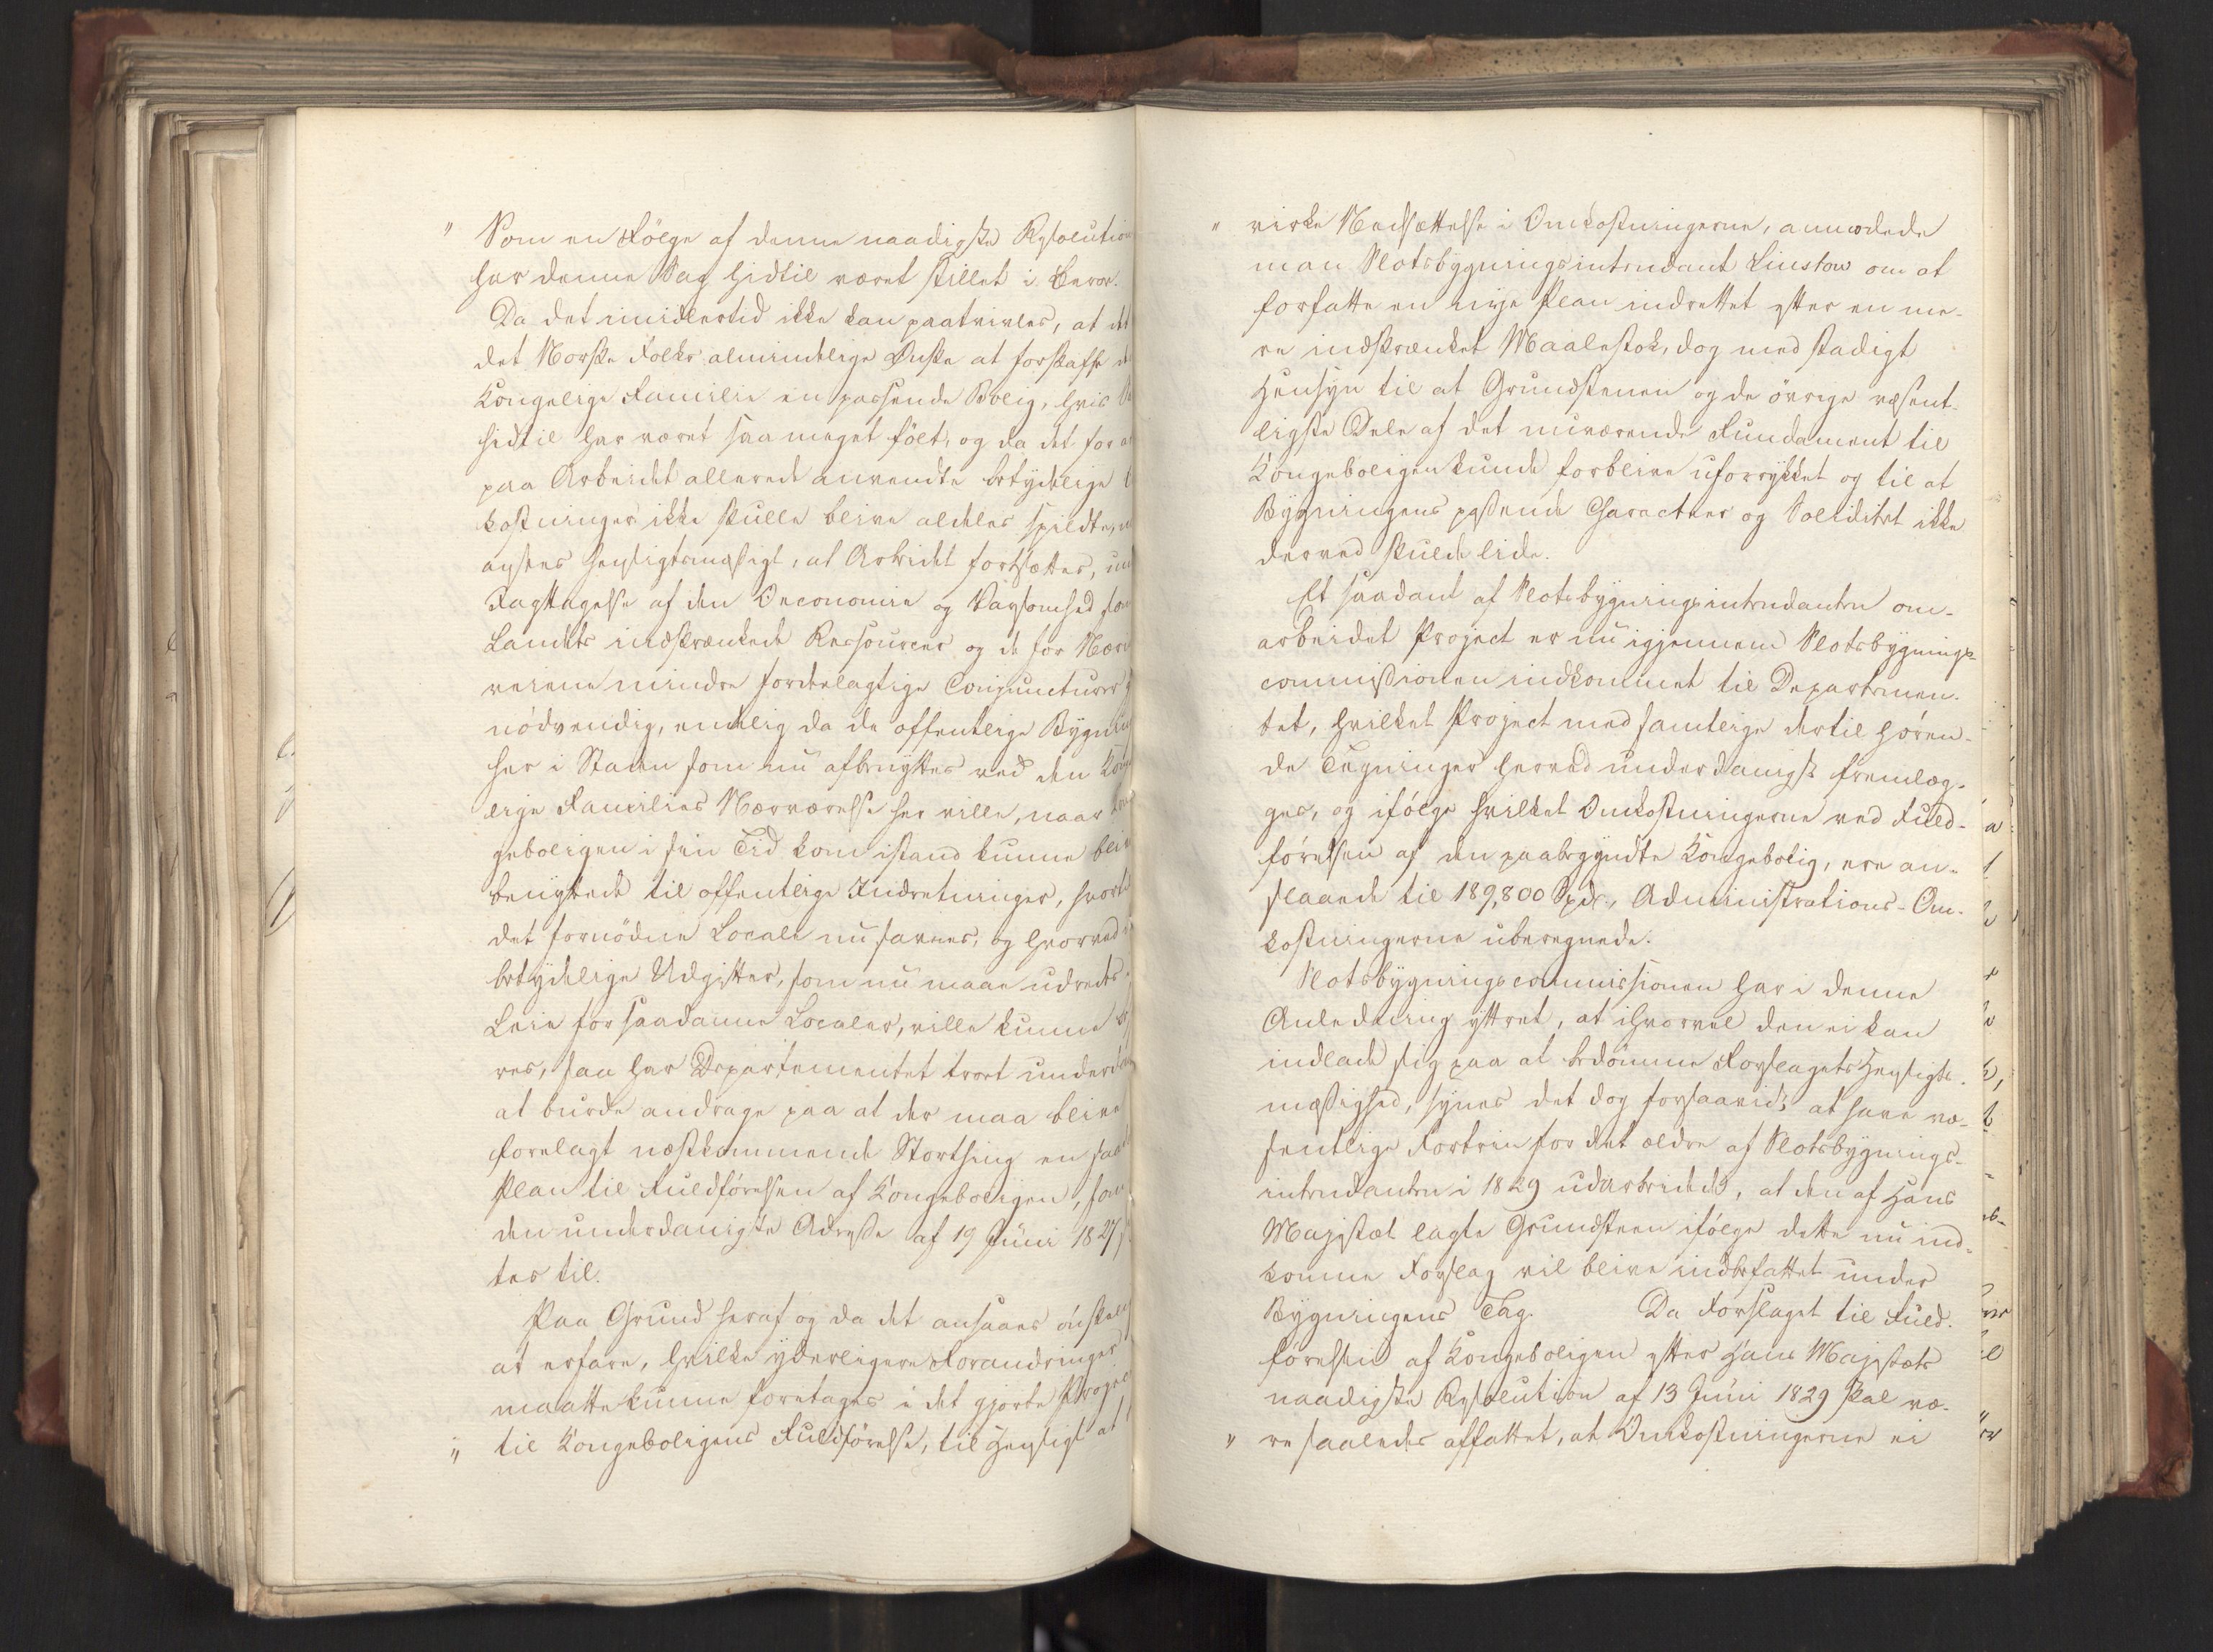 " Som en Følge af denne naadigste Resolution
har denne Sag hidtil været stillet i Bero.
Da det imidlertid ikke kan paatvivles, at det
det Norske Folks almindelige Ønske at forskaffe
Kongelige Familie en passende Bolig, hvis
hidtil har været saa meget følt, og da det for
paa Arbeidet allerede anvendte betydelige
kostninger ikke skulle blive aldeles spildte,
agtes hensigtsmæssigt, at Arbeidet fortsættes,
Iagttagelse af den Oeconomie og Varsomhed
Landets indskrænkede Ressourcer og de for Nær
værende mindre fordelagtige Conjuncturer
nödvendig, endelig da de offentlige Bygn
her i Staden som nu afbenyttes ved den
lige Families Nærværelse her ville, naar
geboligen i sin Tid kom istand kunne
benyttede til offentlige Indretninger, hvortil
det fornödne Locale nu savnes, og hvorved
betydelige Udgifter, som nu maae udredes
Leie for saadanne Localer, ville kunne
res, saa har Departementet troet
at burde andrage paa at der maa blive
forelagt næstkommende Storthing en
Plan til Fuldförelsen af Kongeboligen,
den underdanigste Adresse af 19 Juni 1827,
tes til.
Paa Grund heraf og da det ansaaes
at erfare, hvilke yderligere Forandringer
maatte kunne foretages i det gjorte
" til Kongeboligens Fuldförelse, til Hensigt at
" virke Nedsættelse i Omkostningerne, anmodede
man Slotsbygningsintendant Linstow om at
forfatte en nye Plan indrettet efter en me-
re indskrænket Maalestok, dog med stadigt
Hensyn til at Grundstenen og de övrige væsent-
ligste Dele af det nuværende Fundament til
Kongeboligen kunde forblive uforrykket og til at
Bygningens passende Character og Soliditet ikke
derved skulde lide.
Et saadant af Slotsbygningsintendanten om-
arbeidet Project er nu igjennem Slotsbygnings-
commissionen indkommet til Departemen-
tet, hvilket Project med samtlige dertil hören-
de Tegninger herved underdanigst fremlæg-
ges, og ifölge hvilket Omkostningerne ved Fuld-
förelsen af den paabegyndte Kongebolig, ere an-
slaaede til 189,800 Spd., Administrations-Om-
kostningerne uberegnede.
Slotsbygningscommissionen har i denne
Anledning yttret, at ihvorvel den ei kan
indlade sig paa at bedömme Forslagets Hensigts-
mæssighed, synes det dog forsaavidt at have væ-
sentlige Fortrin for det ældre af Slotsbygnings-
intendanten i 1829 udarbeidede, at den af Hans
Majestæt lagte Grundsteen ifölge dette nu ind-
komne Forslag vil blive indbefattet under
Bygningens Tag. Da Forslaget til Fuld-
förelsen af Kongeboligen efter Hans Majestæts
naadigste Resolution af 13 Juni 1829 skal væ-
" re saaledes affattet, at Omkostningerne ei